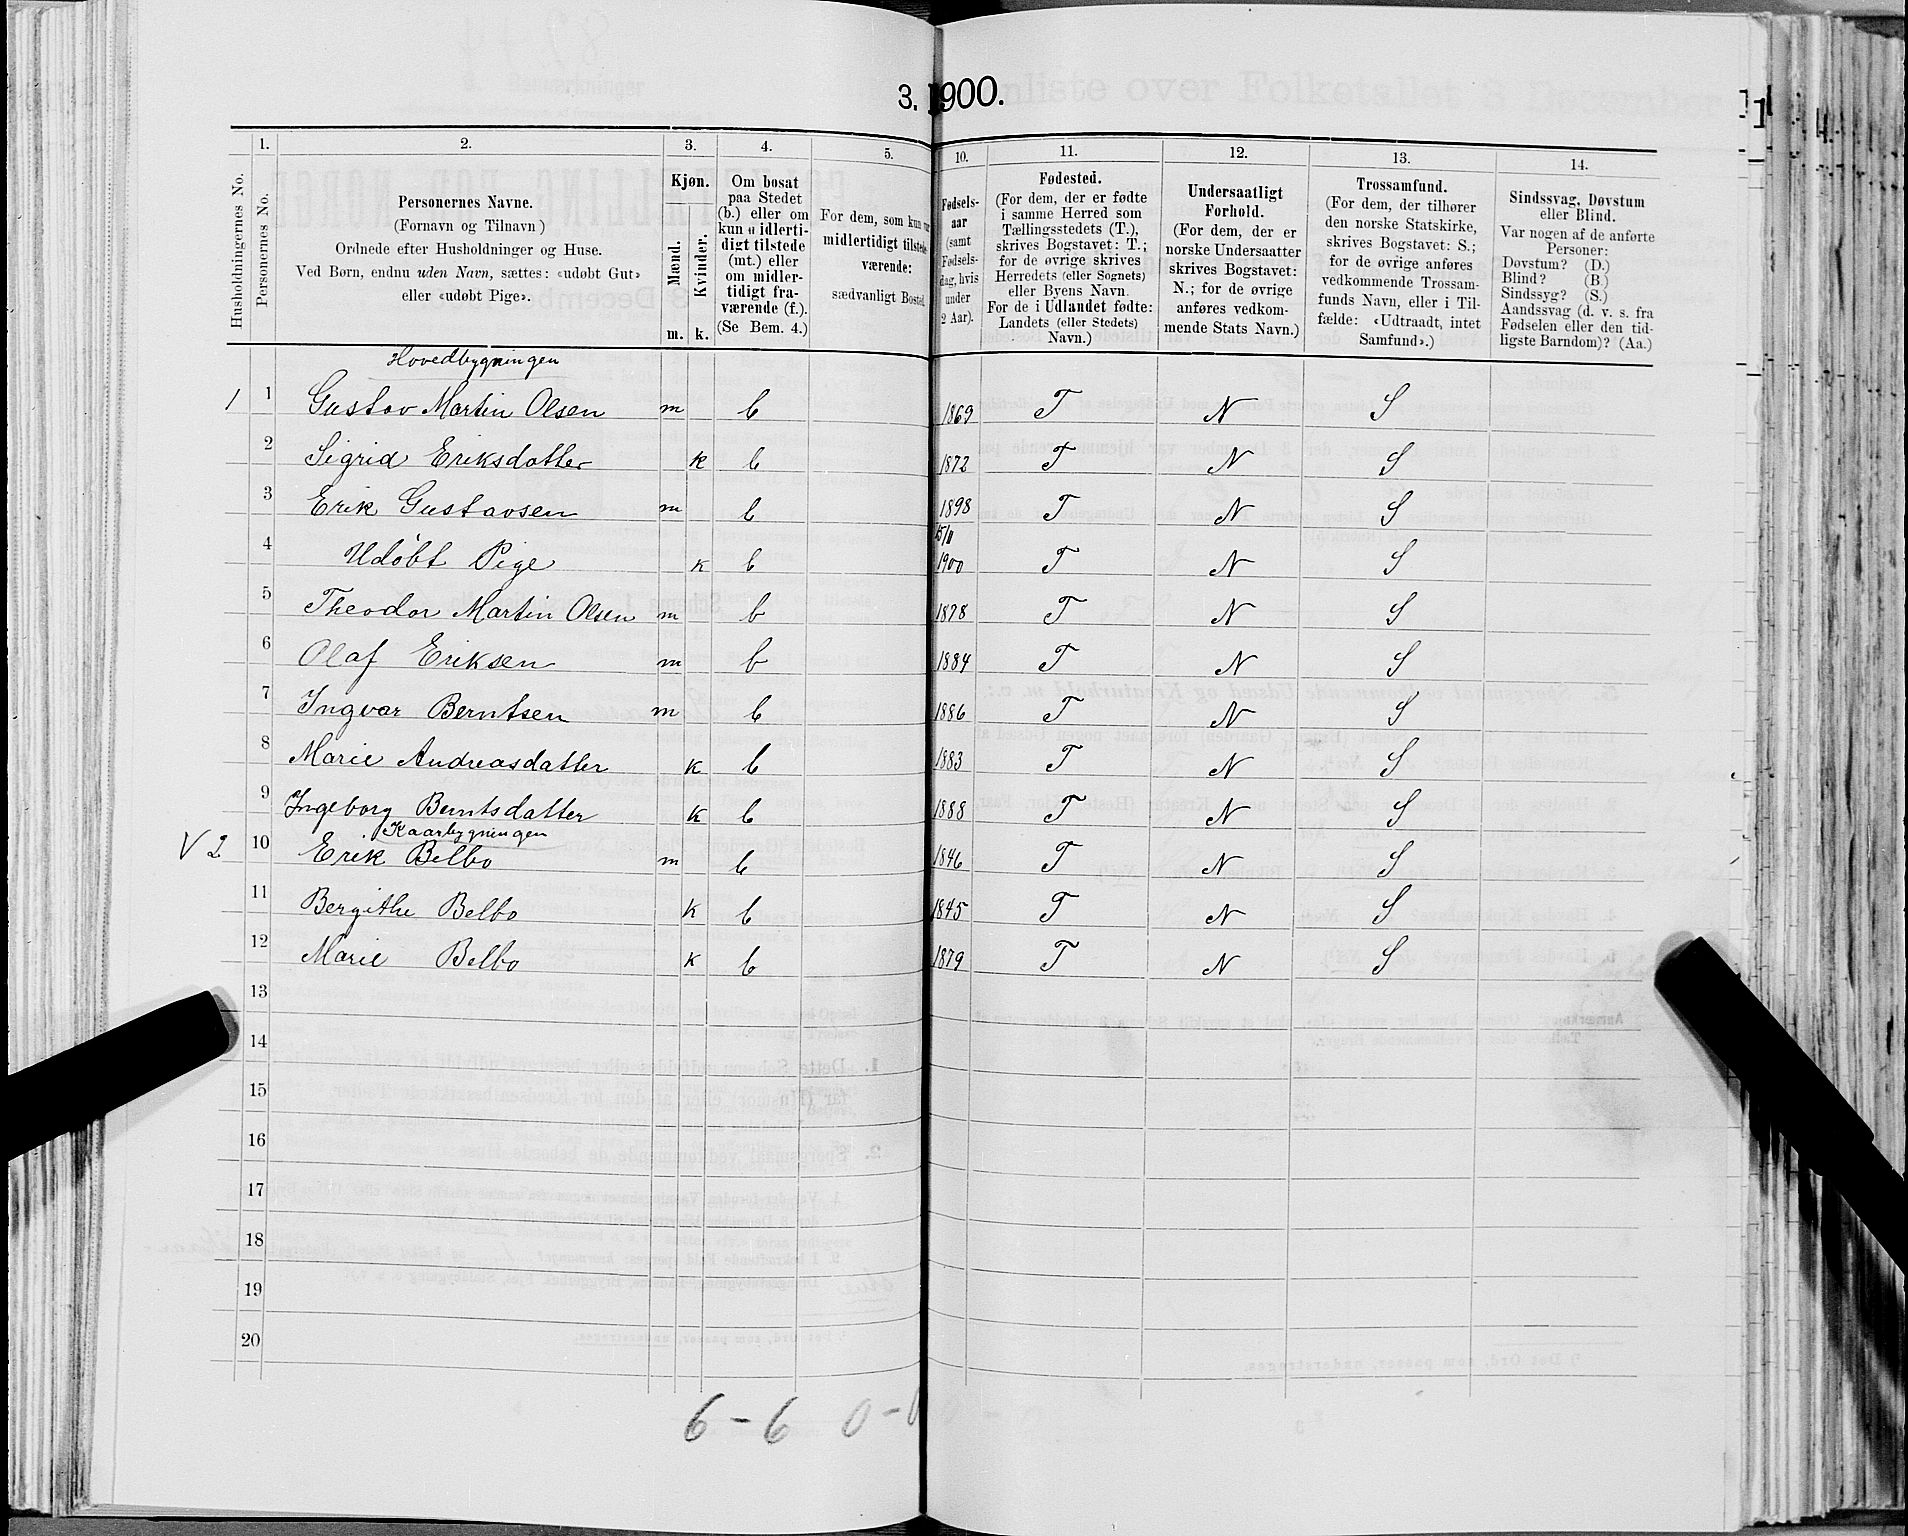 3. 1900.
1. 2. 3. 4. 5. 10. 11. 12. 13. 14.
Husholdningernes No.
Personernes No.
Personernes Navne.
(Fornavn og Tilnavn)
Ordnede efter Husholdninger og Huse.
Ved Børn, endnu uden Navn, sættes: «udøbt Gut»
eller «udøbt Pige».
Kjøn.
Mænd.
Kvinder.
m. k.
Om bosat
paa Stedet
(b.) eller om
kun midlerti-
digt tilstede
(mt.) eller
om midler-
tidigt fra-
værende (f.).
(Se Bem. 4.)
For dem, som kun
midlertidigt tilstede-
værende:
sædvanligt Bosted.
Fødsels-
aar
(samt
Fødsels-
dag, hvis
under
2 Aar).
Fødested.
(For dem, der er fødte
i samme Herred som
Tællingsstedets (T.),
skrives Bogstavet: T.;
for de øvrige skrives
Herredets (eller Sognets)
eller Byens Navn.
For de i Udlandet fødte:
Landets (eller Stedets)
Navn.)
Undersaatligt
Forhold.
(For dem, der er
norske Undersaatter
skrives Bogstavet:
N.; for de øvrige
anføres vedkom-
mende Stats Navn.)
Trossamfund.
(For dem, der tilhører
den norske Statskirke,
skrives Bogstavet: S.;
for de øvrige anføres
vedkommende Trossam-
funds Navn, eller i Til-
fælde: «Udtraadt, intet
Samfund».)
Sindssvag, Døvstum
eller Blind.
Var nogen af de anførte
Personer:
Døvstum? (D.)
Blind? (B.)
Sindssyg? (S.)
Aandssvag (d. v. s. fra
Fødselen eller den tid-
ligste Barndom)? (Aa.)
Hovedbygningen
1 1 Gustav Martin Olsen m b 1869 T N S
2 Sigrid Eriksdatter k b 1872 T N S
3 Erik Gustavsen m b 1898 T N S
15/11
4 Udøbt Pige k b 1900 T N S
5 Theodor Martin Olsen m b 1878 T N S
6 Olaf Eriksen m b 1884 T N S
7 Ingvar Berntsen m b 1886 T N S
8 Marie Andreasdatter k b 1883 T N S
9 Ingeborg Berntsdatter k b 1888 T N S
Kaarbygningen
V 2 10 Erik Belbo m b 1846 T N S
11 Bergithe Belbo k b 1845 T N S
12 Marie Belbo k b 1879 T N S
13
14
15
16
17
18
19
20
6 - 6 0 - 0